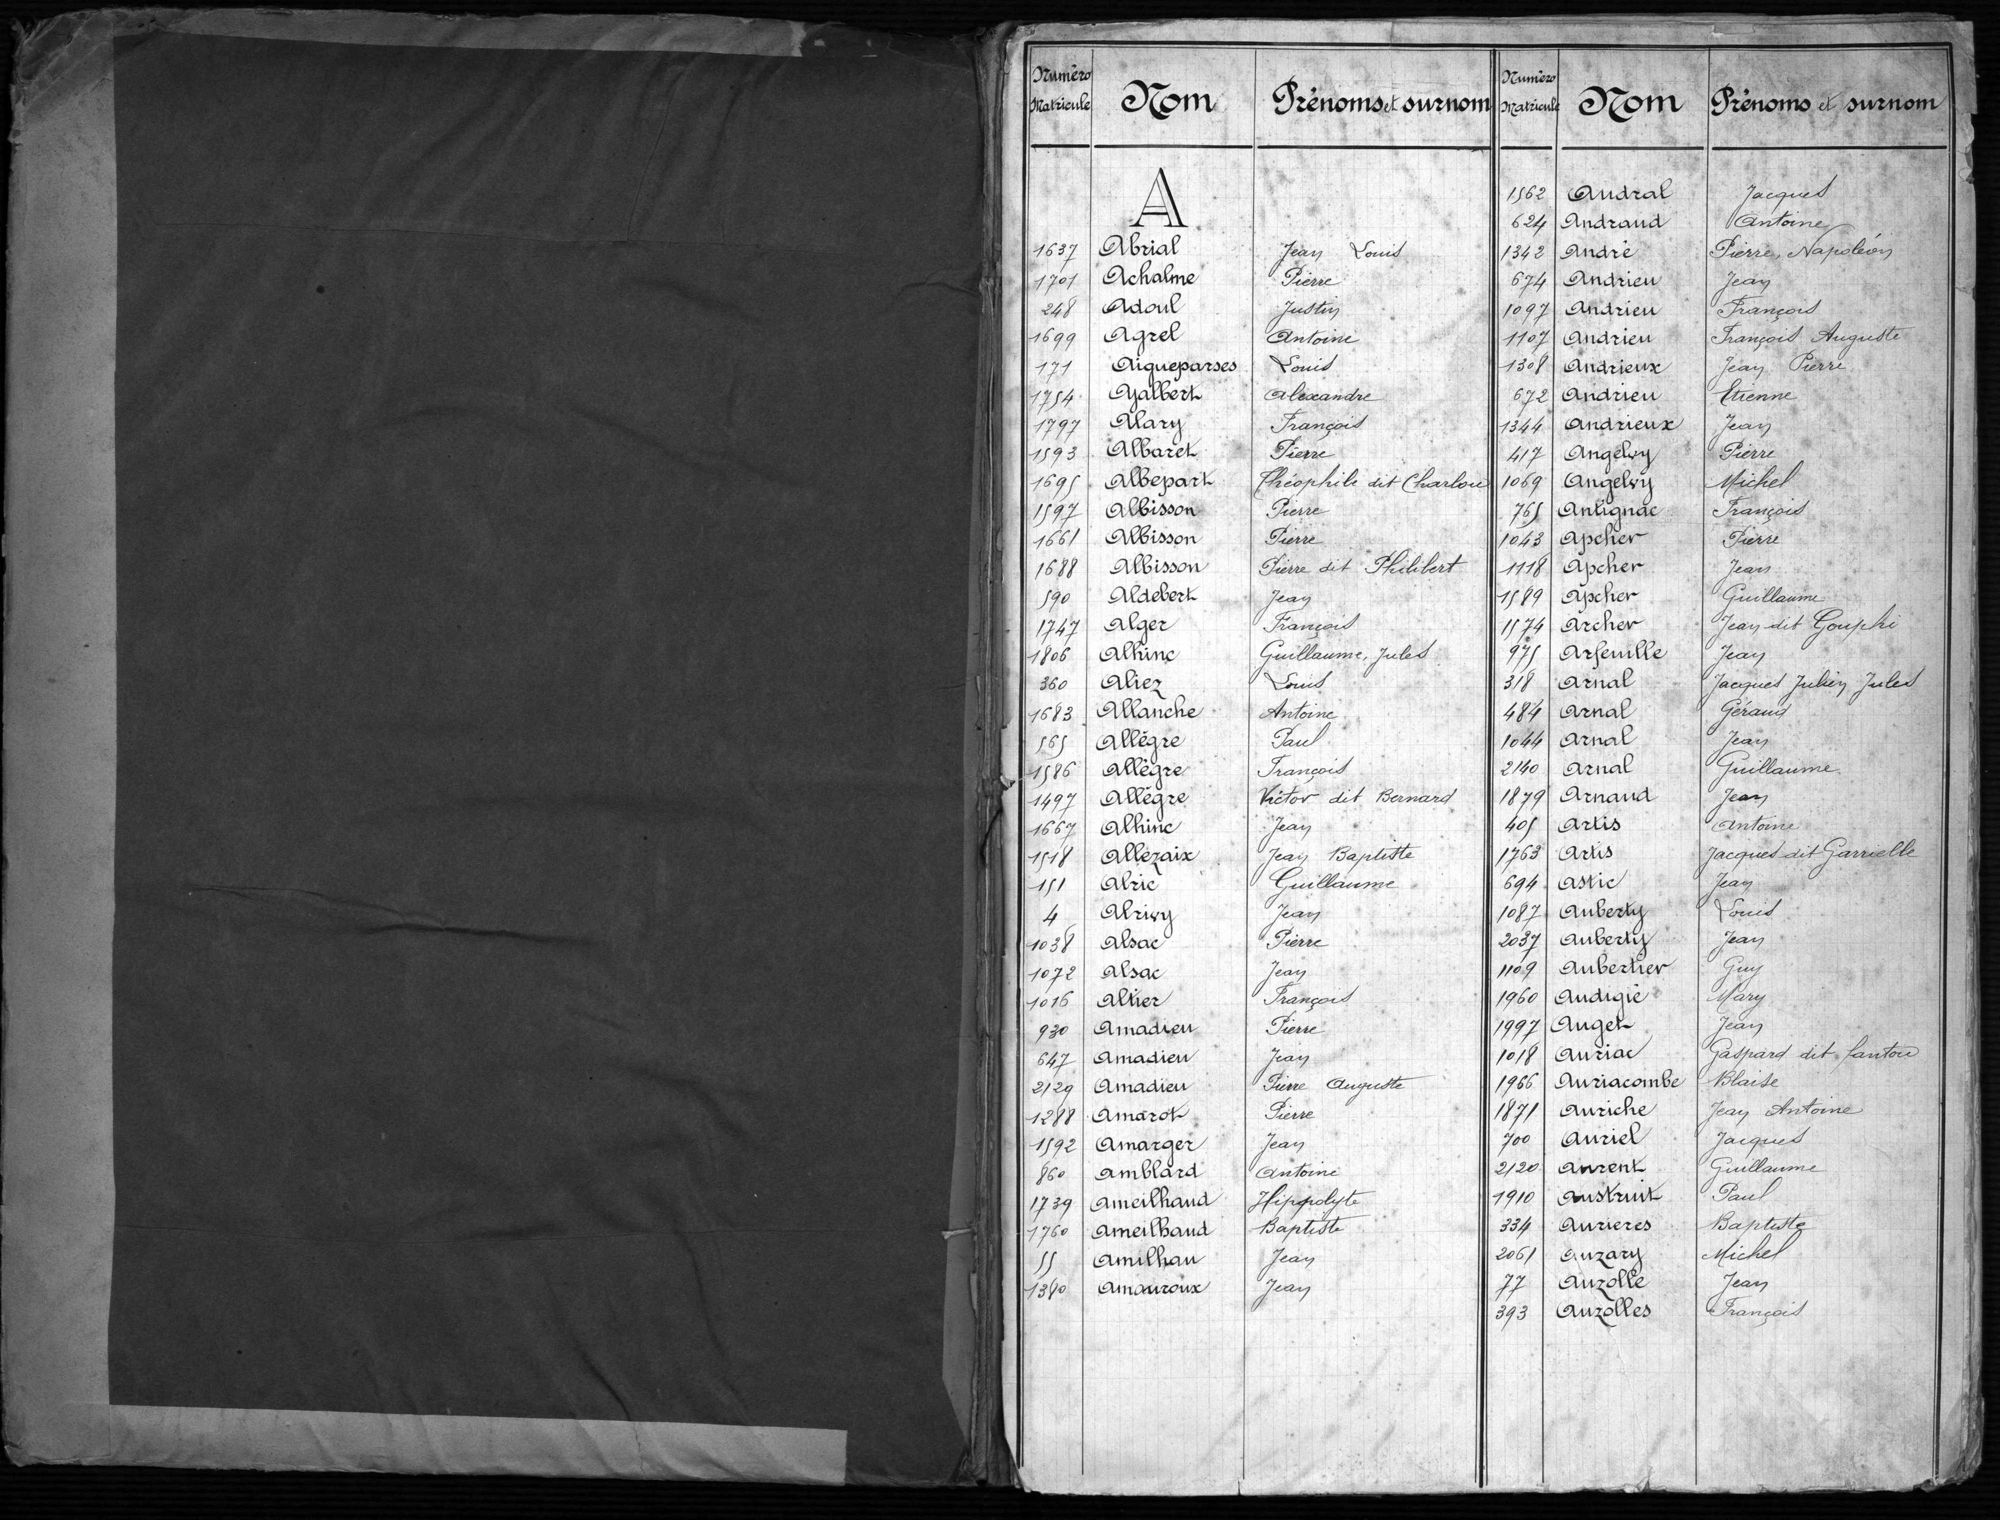 Numéro Matricule Nom Prénoms et surnom
A
1637 Abrial Jean Louis
1701 Achalme Pierre
248 Adoul Justin
1699 Agrel Antoine
171 Aigueparses Louis
1754 Ajalbert Alexandre
1797 Alary François
1593 Albaret Pierre
1695 Albepart Théophile dit Charlou
1597 Albisson Pierre
1661 Albisson Pierre
1688 Albisson Pierre dit Philibert
590 Aldebert Jean
1747 Alger François
1806 Alhinc Guillaume, Jules
360 Aliez Louis
1683 Allanche Antoine
565 Allègre Paul
1586 Allègre François
1497 Allègre Victor dit Bernard
1667 Alhinc Jean
1518 Allezaix Jean Baptiste
151 Alric Guillaume
4 Alrivy Jean
1038 Alsac Pierre
1072 Alsac Jean
1016 Altier François
930 Amadieu Pierre
647 Amadieu Jean
2129 Amadieu Pierre Auguste
1288 Amarot Pierre
1592 Amarger Jean
860 Amblard Antoine
1739 Ameilhaud Hippolyte
1760 Ameilhaud Baptiste
55 Amilhau Jean
1380 Amouroux Jean
Numéro Matricule Nom Prénoms et surnom
1562 Andral Jacques
624 Andraud Antoine
1342 André Pierre, Napoléon
674 Andrieu Jean
1097 Andrieu François
1107 Andrieu François Auguste
1308 Andrieux Jean Pierre
672 Andrieu Etienne
1344 Andrieux Jean
417 Angelvy Pierre
1069 Angelvy Michel
765 Antignac François
1043 Apcher Pierre
1118 Apcher Jean
1589 Apcher Guillaume
1574 Archer Jean dit Gouphi
975 Arfeuille Jean
318 Arnal Jacques Julien Jules
484 Arnal Géraud
1044 Arnal Jean
2140 Arnal Guillaume
1879 Arnaud Jean
405 Artis Antoine
1763 Artis Jacques dit Garrielle
694 Astic Jean
1087 Auberty Louis
2037 Auberty Jean
1109 Aubertier Guy
1960 Audigié Mary
1997 Auget Jean
1018 Auriac Gaspard dit
1966 Auriacombe Blaise
1871 Auriche Jean Antoine
700 Auriel Jacques
2120 Aurent Guillaume
1910 Austruit Paul
334 Aurieres Baptiste
2061 Auzary Michel
77 Auzolle Jean
393 Auzolles François